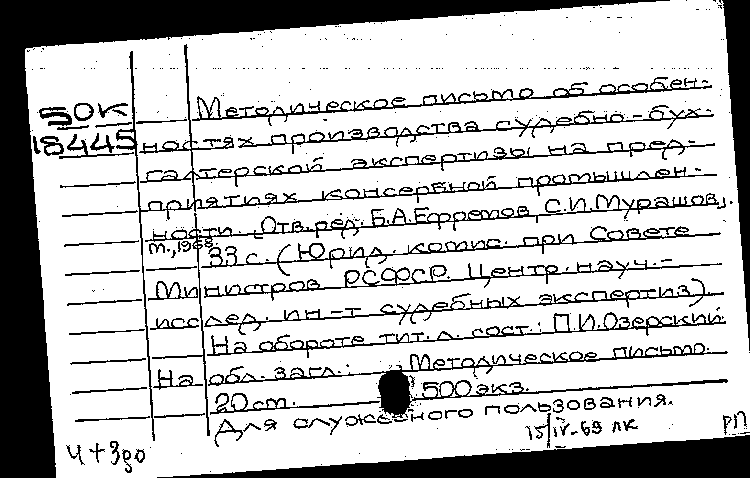 50К
18445
Методическое письмо об особен-
ностях производства судебно-бух-
галтерской экспертизы на пред-
приятиях консервной промышлен-
ности. [Отв. ред. Б.А.Ефремов, С.И.Мурашов].
М., 1968.
33 с. (Юрид. комис. при Совете
Министров РСФСР. Центр. науч.-
исслед. ин-т судебных экспертиз)
На обороте тит. л. сост.: П.И.Озерский.
На обл. загл.: Методическое письмо.
20 см. 500 экз.
Для служебного пользования.
15/IV-69 ЛК
РП